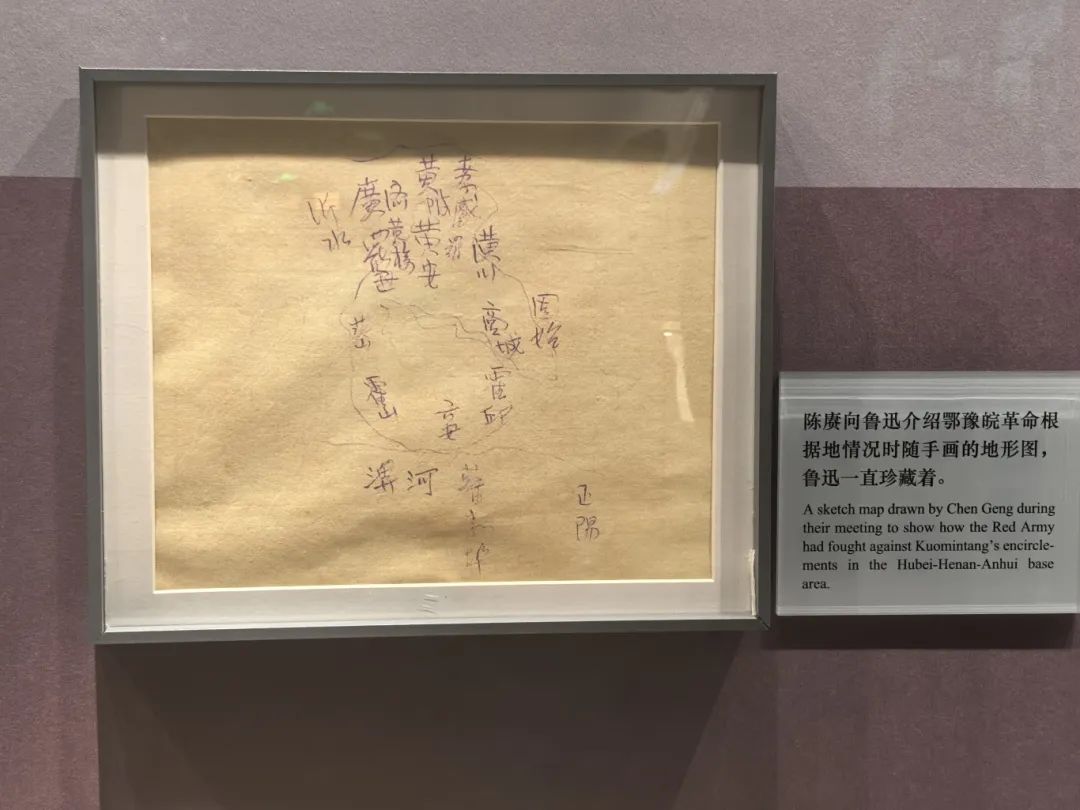 孝感
黄陂
黄安
漢川
廣濟
黄梅
水
商城
固始
霍山
霍邱
六安
河
正陽
陈赓向鲁迅介绍鄂豫皖革命根
据地情况时随手画的地形图，
鲁迅一直珍藏着。
A sketch map drawn by Chen Geng during
their meeting to show how the Red Army
had fought against Kuomintang's encircle-
ments in the Hubei-Henan-Anhui base
area.